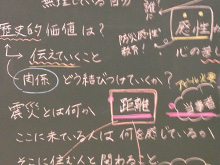 無性している自分
感性か
防災感性
教育!
歴史的価値は?
心の
伝えていくこと
関係
どう結びつけていくか?
震災とは何か
距離
当事者
ここに来ている人は何を感じているか
そこに住む人と関わること